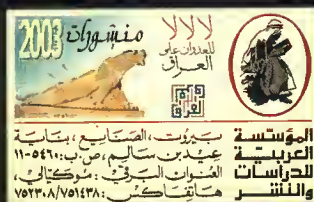 منشورات 2003
لا لا لا
للعدوان على
العراق
المؤسسة
العربية
للدراسات
والنشر
بيروت، الصنايع، بناية
عيد بن سالم، ص.ب: ٥٤٦٠-١١
العنوان البرقي: موكيالي،
هاتفاكس: ٧٥١٤٣٨/٧٥٢٣٠٨